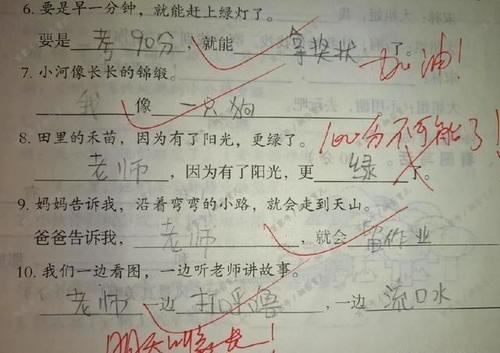 6. 要是早一分钟，就能赶上绿灯了。
要是 考90分，就能 拿奖状 了。 加油！
7. 小河像长长的锦缎。
我 像 一只狗
100分不可能了！
8. 田里的禾苗，因为有了阳光，更绿了。
老师，因为有了阳光，更 绿 了。
9. 妈妈告诉我，沿着弯弯的小路，就会走到天山。
爸爸告诉我，老师，就会 留作业
10. 我们一边看图，一边听老师讲故事。
老师 一边 打呼噜，一边 流口水
明天叫家长！